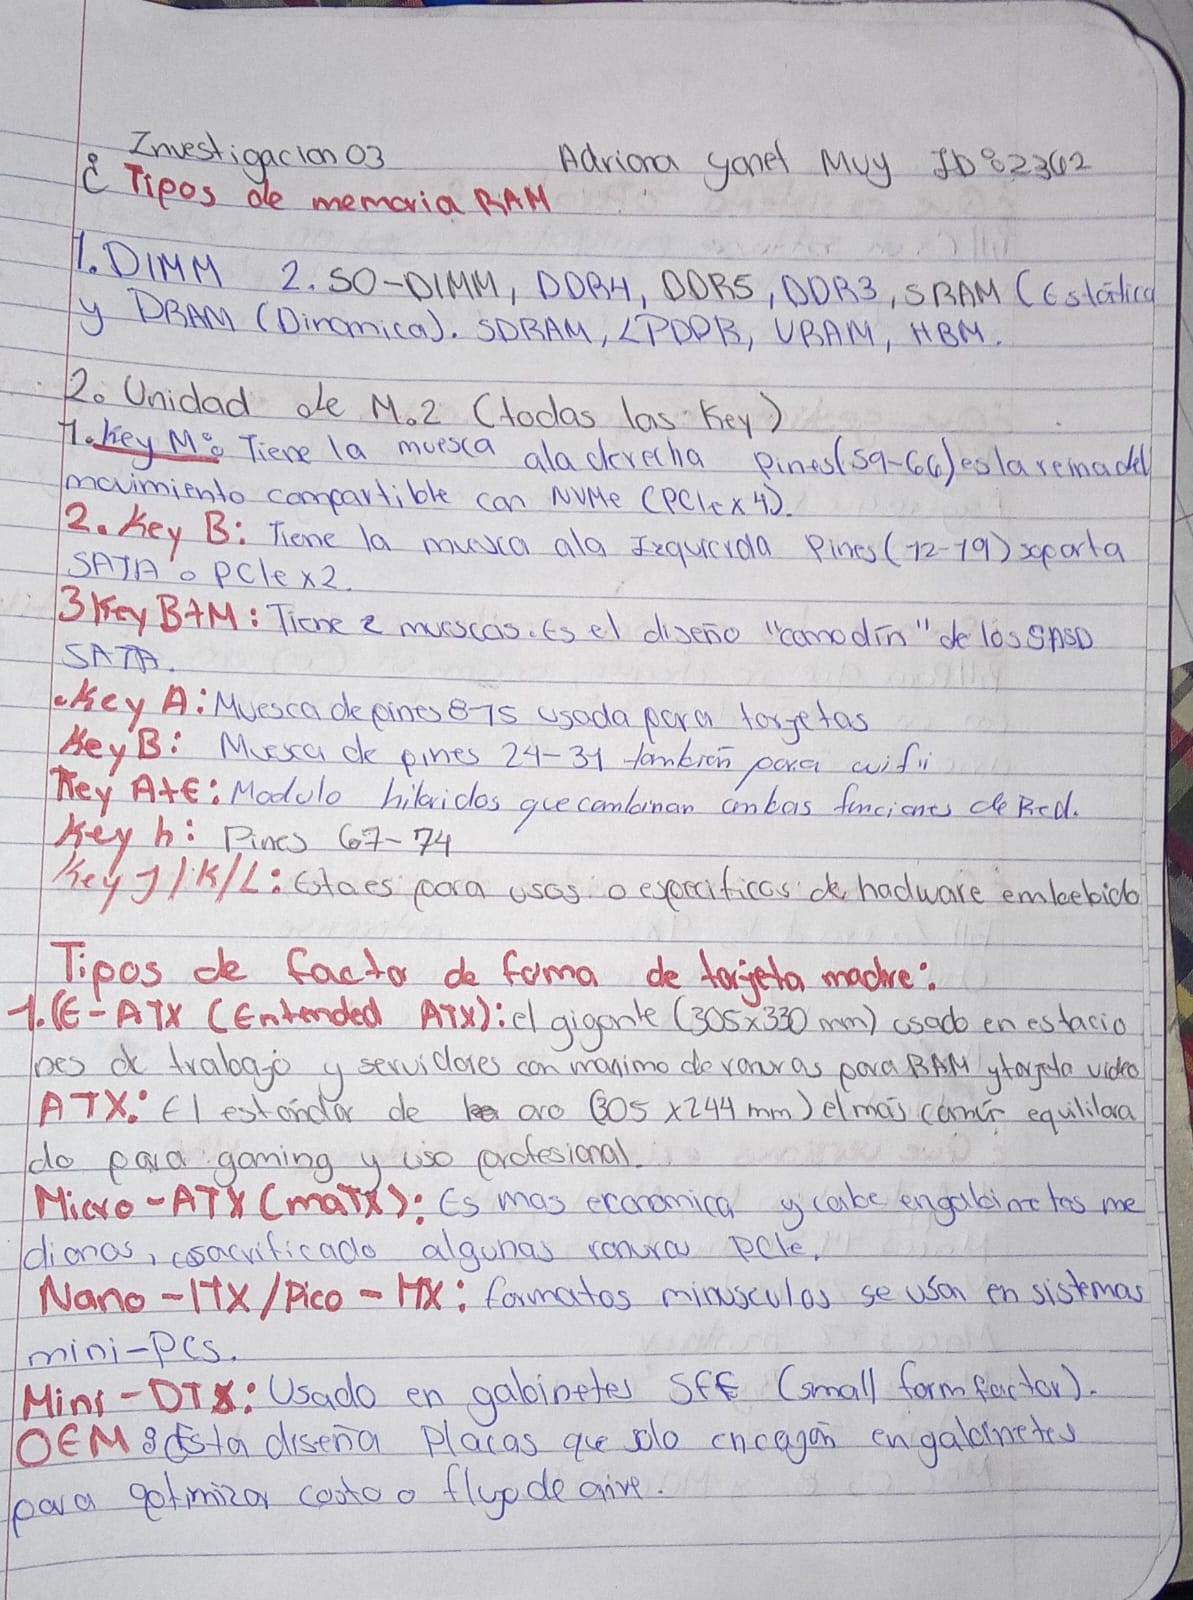 Investigacion 03 Adriana Yanet Muy ID: 2362
Tipos de memoria RAM
1. DIMM 2. SO-DIMM, DDR4, DDR5, DDR3, SRAM (Estática
y DRAM (Dinamica). SDRAM, LPDDR, VRAM, HBM.
2. Unidad de M.2 (todas las Key)
1. Key M: Tiene la muesca ala derecha pines (59-66) es la reina del
movimiento compartible con NVMe (PCIe x4).
2. Key B: Tiene la muesca ala Izquierda Pines (12-19) soporta
SATA o PCIe x2.
3 Key B+M: Tiene 2 muescas. Es el diseño "comodín" de los
SATA.
Key A: Muesca de pines 8-15 usada para targetas
Key B: Muesca de pines 24-31 también para wifi
Key A+E: Modulo hibridos que combinan ambas funciones de Red.
Key h: Pines 67-74
Key J/K/L: Estaes para usos o especificos de hadware embebido
Tipos de factor de foma de tarjeta madre:
1. (E-ATX (Entended ATX): el gigante (305x330 mm) usado en estacio
nes de trabajo y servidores con maximo de ranuras para RAM y targeta video
ATX: El estándar de oro (305 x 244 mm) el más común equilibra
do para gaming y uso profesional.
Micro-ATX (maTX): Es mas economica y cabe en gabinetes me
dianos, sacrificado algunas ranura PCIe.
Nano-ITX/Pico-ITX: formatos minusculos se usan en sistemas
mini-PCs.
Mini-DTX: Usado en gabinetes SFF (small form factor).
OEM: Esta diseña Placas que solo encagan en gabinetes
para optimizar costo o flujo de aire.